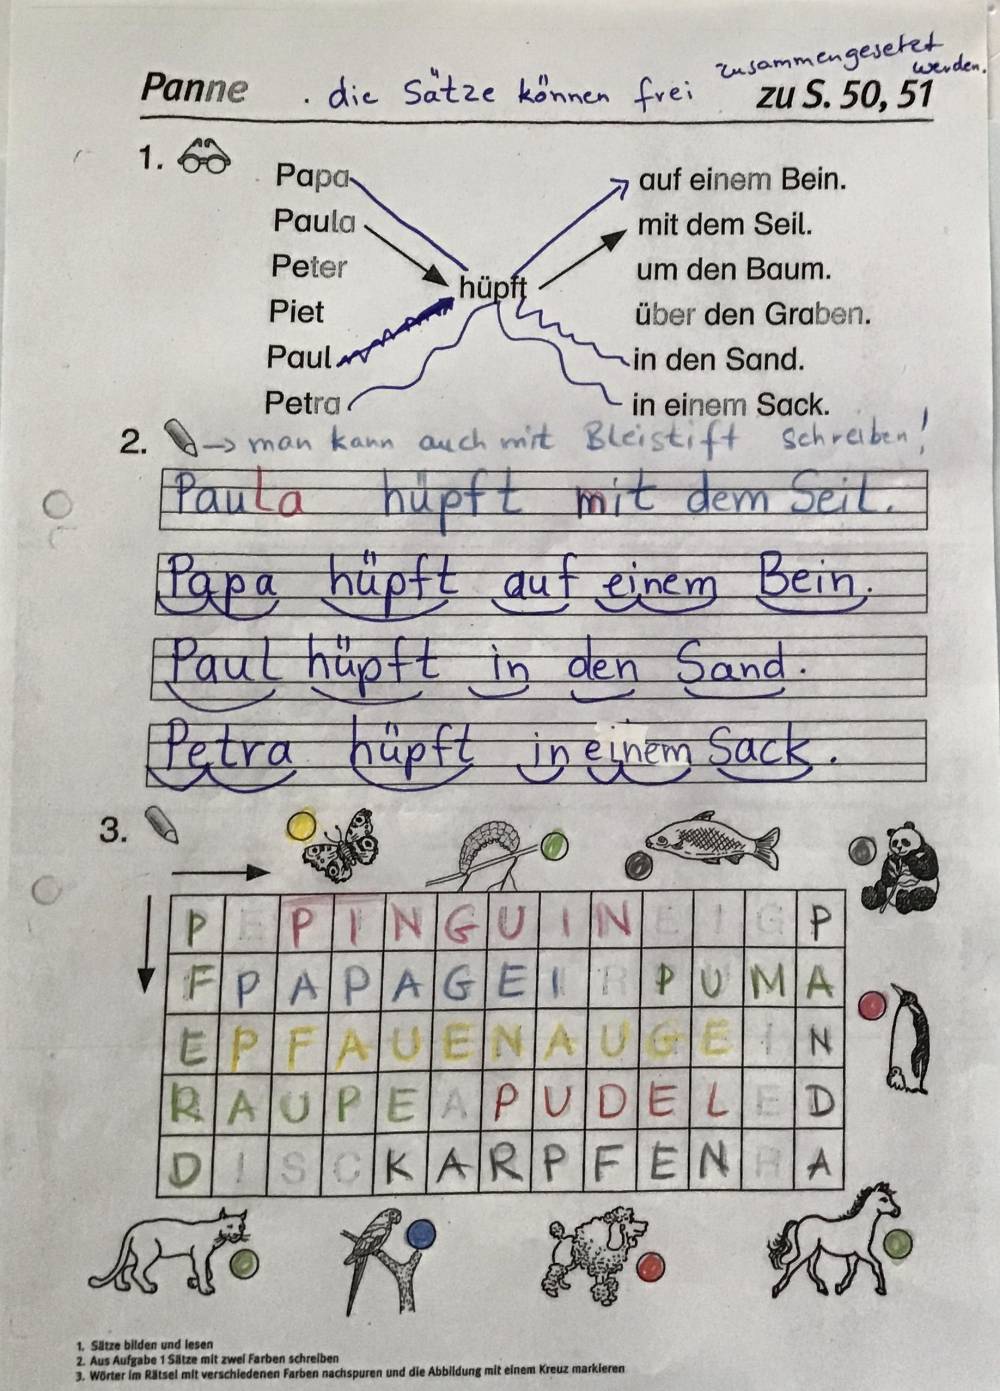 zusammengesetzt
werden.
Panne . die Sätze können frei zu S. 50, 51
1.
Papa auf einem Bein.
Paula mit dem Seil.
Peter um den Baum.
hüpft
Piet über den Graben.
Paul in den Sand.
Petra in einem Sack.
2. → man kann auch mit Bleistift schreiben!
Paula hüpft mit dem Seil.
Papa hüpft auf einem Bein.
Paul hüpft in den Sand.
Petra hüpft in einem Sack.
3.
P E P I N G U I N E I G P
F P A P A G E I R P U M A
E P F A U E N A U G E I N
R A U P E A P U D E L E D
D I S C K A R P F E N H A
1. Sätze bilden und lesen
2. Aus Aufgabe 1 Sätze mit zwei Farben schreiben
3. Wörter im Rätsel mit verschiedenen Farben nachspuren und die Abbildung mit einem Kreuz markieren